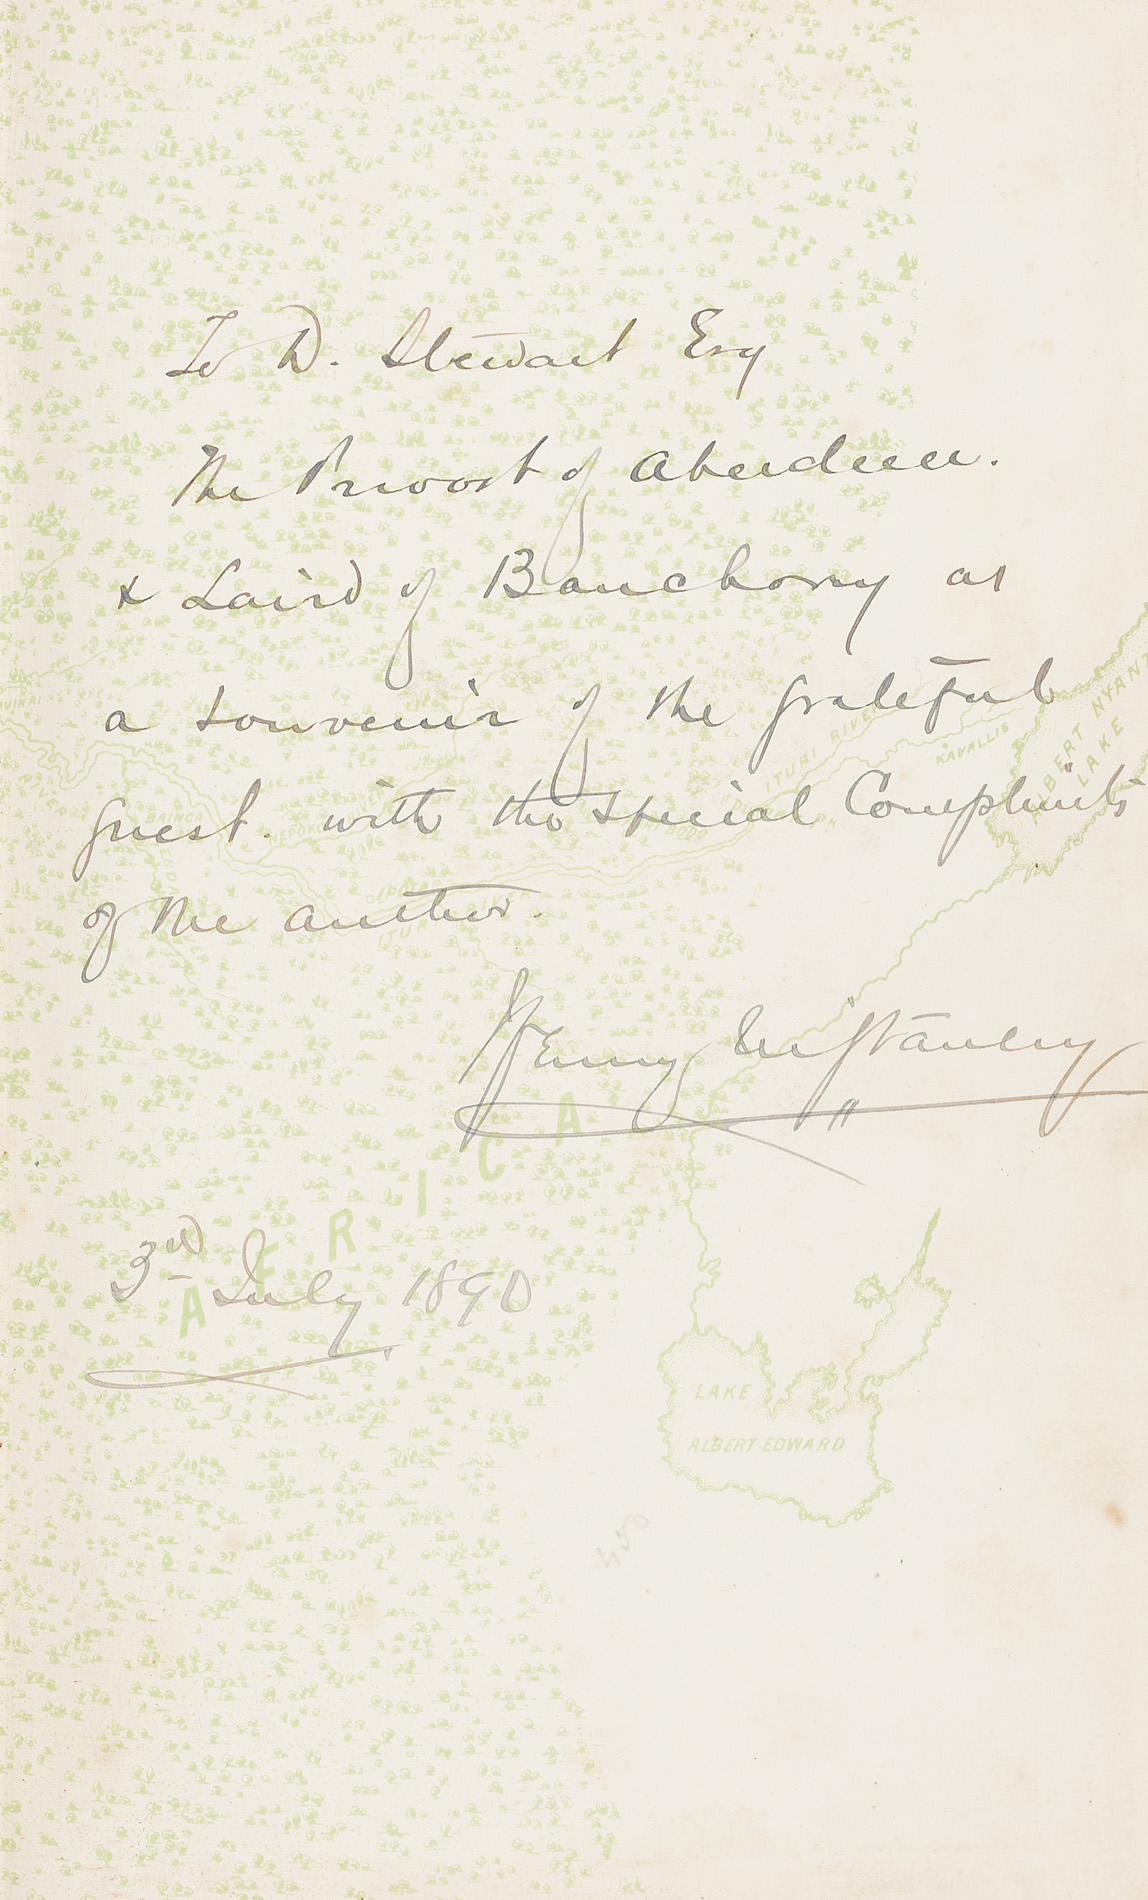 To D. Stewart Esq
The Provost of Aberdeen.
& Laird of Banchory as
a souvenir of the grateful
guest. with the special Compliments
of the author.
Henry M Stanley
3rd July 1890
AFRICA
ALBERT NYANZA
LAKE
KAVALLIS
ITURI RIVER
LAKE
ALBERT EDWARD